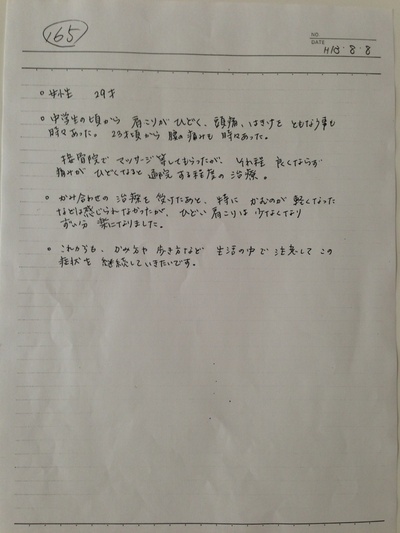 165
NO.
DATE H15・8・8
○ 女性 29才
○ 中学生の頃から 肩こりがひどく、頭痛、はきけを ともなう事も
時々あった。23才頃から 腰の痛みも 時々あった。
接骨院で マッサージ等してもらったが、それ程 良くならず
痛みが ひどくなると 通院する程度の 治療。
○ かみ合わせの 治療を 受けたあと、特に が軽くなった
などは感じられなかったが、ひどい肩こりは 少なくなり
ずい分 楽になりました。
○ これからも、かみ方や 歩き方など 生活の中で 注意して この
症状を 継続していきたいです。